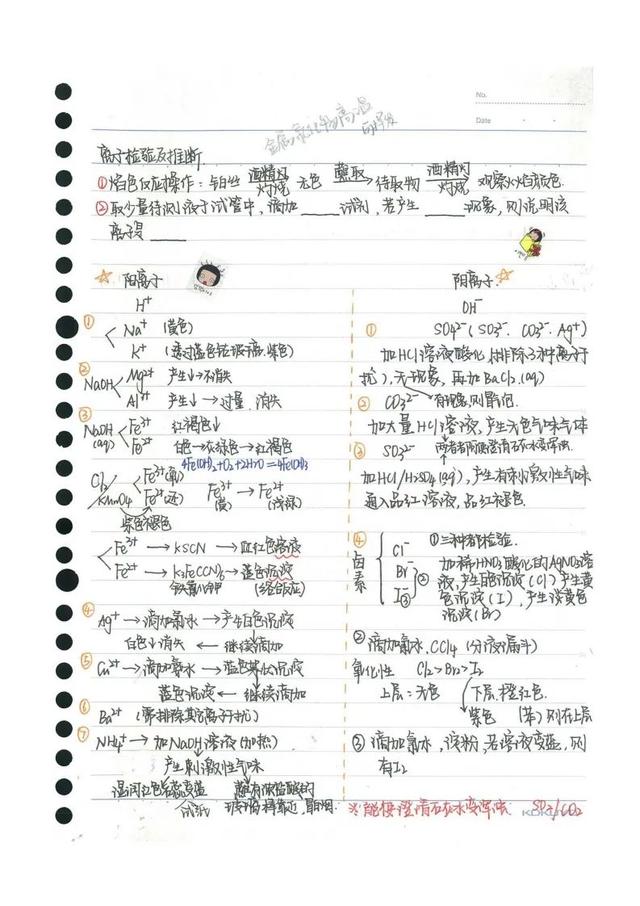 No.
Date
金属氢化物高温
离子检验及推断
①焰色反应操作：铂丝 酒精灯 灼烧 无色 蘸取 待取物 酒精灯 灼烧 观察火焰颜色.
②取少量待测液于试管中，滴加____试剂，若产生____现象，则说明该
离子是____
☆ 阳离子
H⁺
① Na⁺ (黄色)
K⁺ (透过蓝色钴玻璃.紫色)
② NaOH Mg²⁺ 产生↓→不消失
Al³⁺ 产生↓→过量.消失
③ NaOH (aq) Fe³⁺ 红褐色↓
Fe²⁺ 白色→灰绿色→红褐色
4Fe(OH)₂+O₂+2H₂O=4Fe(OH)₃
Cl₂ Fe³⁺(氧) Fe³⁺→Fe²⁺
KMnO₄ Fe²⁺(还) (黄) (浅绿)
紫色褪色
Fe³⁺ → KSCN → 血红色溶液
Fe²⁺ → K₃Fe(CN)₆→蓝色沉淀
铁氰化钾 (络合反应)
④ Ag⁺→滴加氨水→产生白色沉淀
白色↓消失 ← 继续滴加
⑤ Cu²⁺→滴加氨水→蓝色絮状沉淀
蓝色沉淀 ← 继续滴加
⑥ Ba²⁺ (需排除其它离子干扰)
⑦ NH₄⁺→加NaOH溶液(加热)
产生刺激性气味
湿润红色石蕊变蓝 蘸有浓盐酸的
试纸 玻璃棒靠近，冒白烟
阳离子☆
OH⁻
① SO₄²⁻(SO₃²⁻ CO₃²⁻ Ag⁺)
加HCl溶液酸化(排除3种离子干
扰)，无现象，再加BaCl₂(aq)
② CO₃²⁻ 有现象，则冒泡.
加大量HCl溶液，产生无色气味气体
③ SO₃²⁻ 两者都可使澄清石灰水变浑浊.
加HCl/H₂SO₄(aq)，产生有刺激性气味
通入品红溶液，品红褪色.
④ 卤素 Cl⁻ Br⁻ I⁻ ② ③
①三种都检验.
加稀HNO₃酸化的AgNO₃溶
液，产生白色沉淀(Cl)产生黄
色沉淀(I)，产生淡黄色
沉淀(Br)
②滴加氯水，CCl₄ (分液漏斗)
氧化性 Cl₂>Br₂>I₂
上层：无色 下层.橙红色.
紫色 (苯)则在上层
③滴加氯水，淀粉，若溶液变蓝，则
有I₂
※能使澄清石灰水变浑浊 SO₂/CO₂
KOKUYO